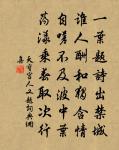 一葉題詩出禁城
誰人酬和獨含情
自嗟不及波中葉
蕩漾乘春取次行
天寶宮人又題